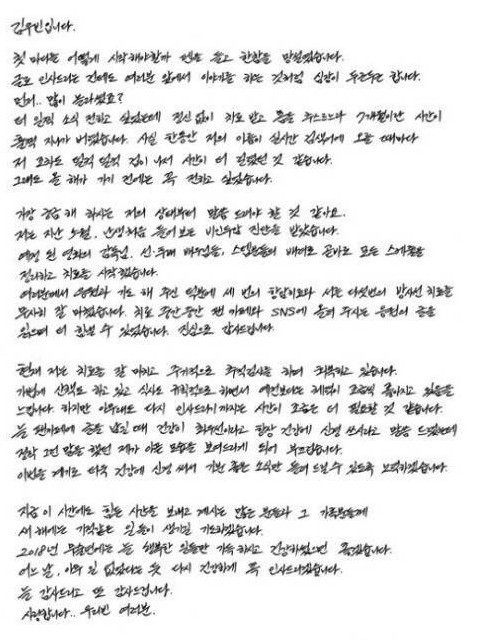 김우빈입니다.
첫 마디를 어떻게 시작해야할까 펜을 들고 한참을 망설였습니다.
글로 인사드리는 건데도 여러분 앞에서 이야기를 하는 것처럼 심장이 두근두근 합니다.
먼저.. 많이 놀라셨죠?
더 일찍 소식 전하고 싶었는데 정신 없이 치료 받고 몸을 추스르느라 7개월이란 시간이
훌쩍 지나가 버렸습니다. 사실 한동안 저의 이름이 실시간 검색어에 오를 때마다
저 조차도 덜컥 덜컥 겁이 나서 시간이 더 걸렸던 것 같습니다.
그래도 올 해가 가기 전에는 꼭 전하고 싶었습니다.
가장 궁금해 하시는 저의 상태부터 말씀 드려야 할 것 같아요.
저는 지난 5월, 난생처음 들어보는 비인두암 진단을 받았습니다.
예정 된 영화의 감독님, 선·후배 배우님들, 스텝분들의 배려로 곧바로 모든 스케줄을
정리하고 치료를 시작했습니다.
여러분께서 응원과 기도 해 주신 덕분에 세 번의 항암치료와 서른 다섯번의 방사선 치료를
무사히 잘 마쳤습니다. 치료 중간중간 팬 카페와 SNS에 올려 주시는 응원의 글을
읽으며 더 힘낼 수 있었습니다. 진심으로 감사드립니다.
현재 저는 치료를 잘 마치고 주기적으로 추적검사를 하며 회복하고 있습니다.
가볍게 산책도 하고 있고 식사도 규칙적으로 하면서 예전보다는 체력이 조금씩 좋아지고 있음을
느낍니다. 하지만 아무래도 다시 인사드리기까지는 시간이 조금은 더 필요할 것 같습니다.
늘 팬카페에 글을 남길 때 건강이 최우선이라고 항상 건강에 신경 쓰시라고 말씀 드렸는데
정작 그런 말을 했던 제가 아픈 모습을 보여드리게 되어 부끄럽습니다.
이번을 계기로 더욱 건강에 신경 써서 기쁘고 좋은 소식만 들려 드릴 수 있도록 노력하겠습니다.
지금 이 시간에도 힘든 시간을 보내고 계시는 많은 분들과 그 가족분들께
새 해에는 기적같은 일들이 생기길 기도하겠습니다.
2018년 무술년에는 늘 행복한 일들만 가득 하시고 건강하셨으면 좋겠습니다.
어느 날, 아무 일 없었다는 듯 다시 건강하게 꼭 인사드리겠습니다.
늘 감사드리고 또 감사드립니다.
사랑합니다.. 우리빈 여러분.